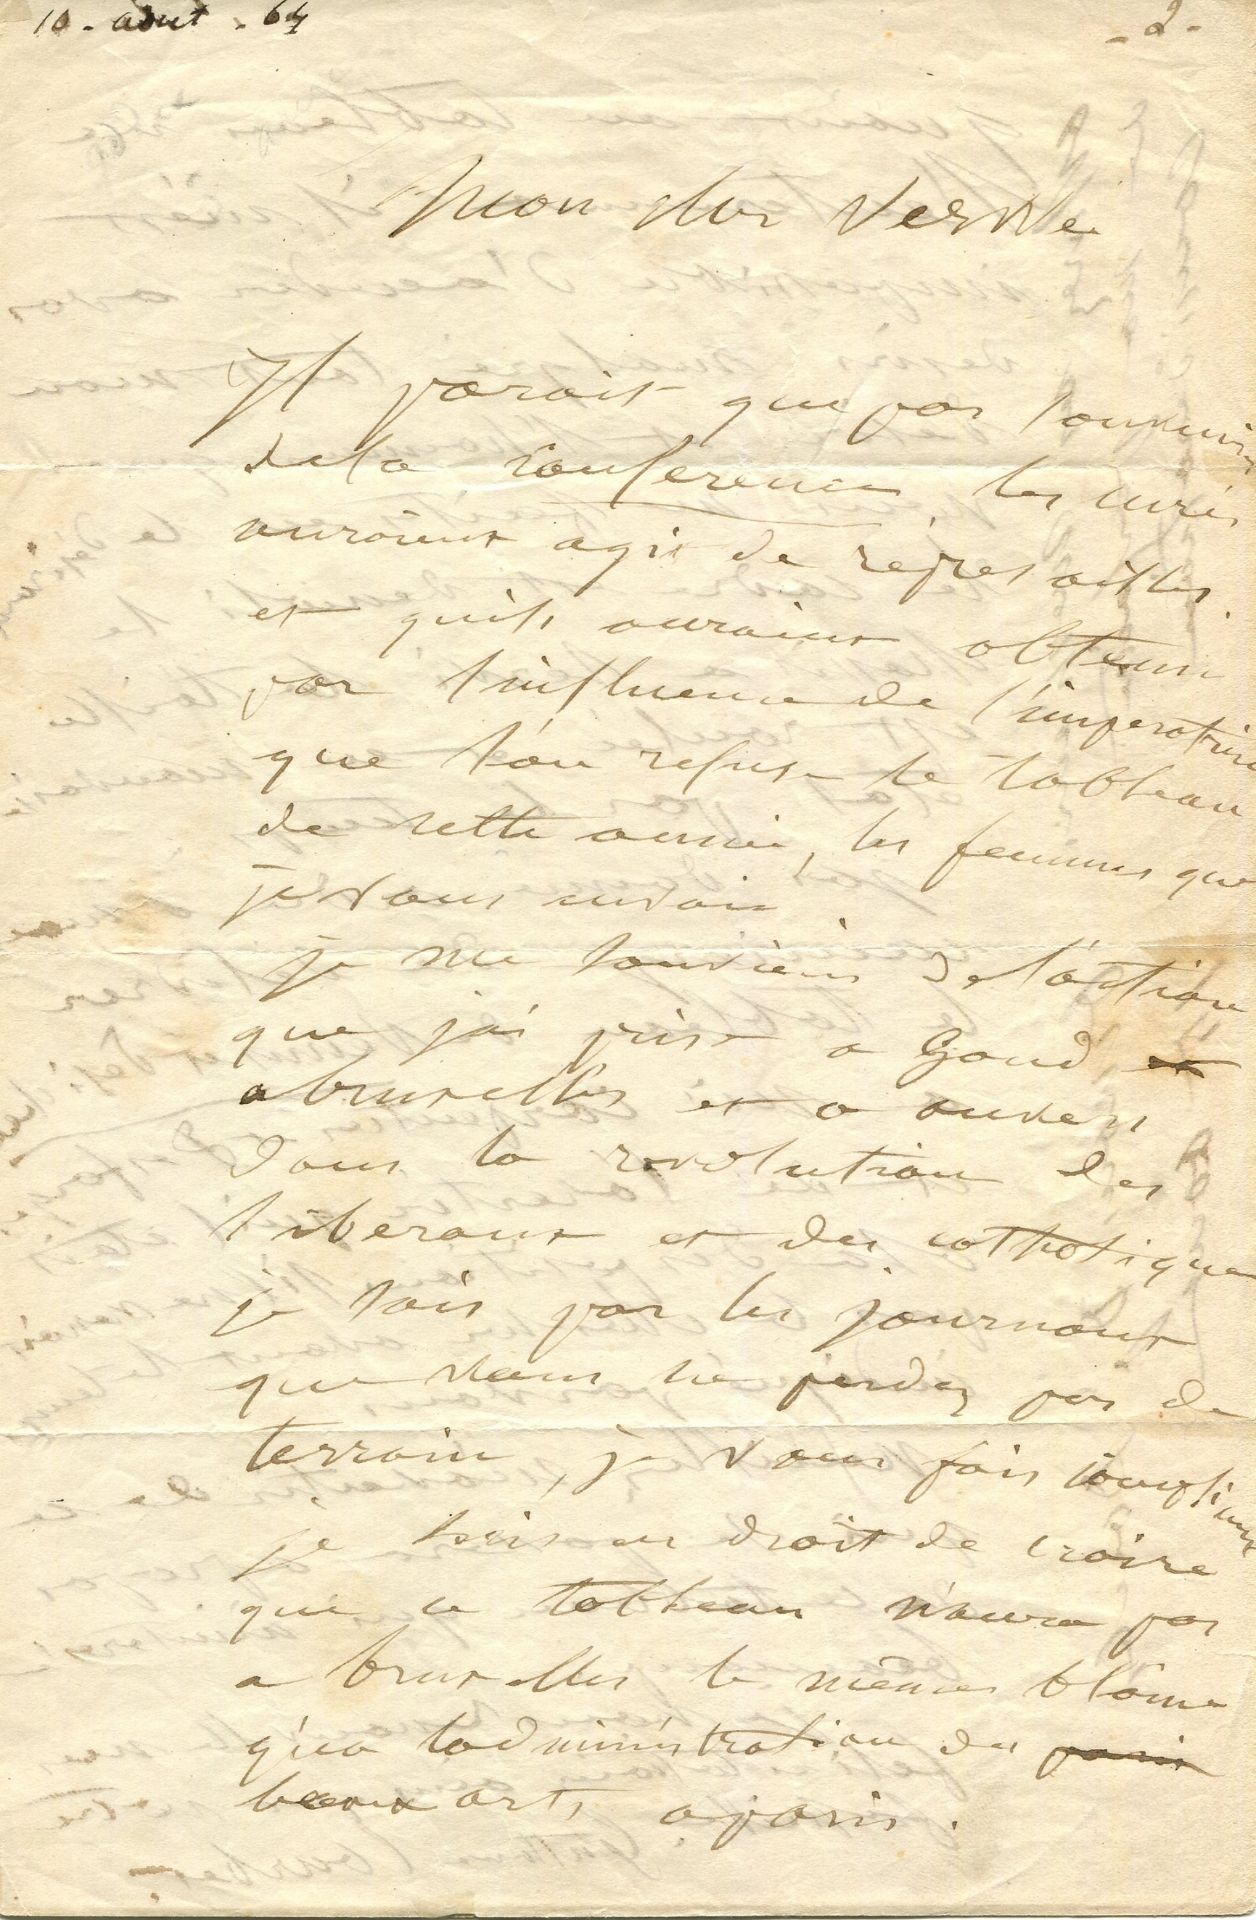 10 - aout - 64
- 2 -
Mon cher Verwée
Il parait que par souvenir
de la Conference, les curés
auraient agit de represailles
et quils auraient obtenu
par linfluence de l'imperatrice
que l'on refuse le tableau
de cette année, les femmes que
je vous envoie.
je me souviens de l'action
que j'ai prise a Gand et
a bruxelles et a anvers
dans la revolution des
liberaux et des catholique
je sais par les journaux
que vous ne perdez pas de
terrain, je vous fais compliment
je suis en droit de croire
que ce tableau n'aura pas
a bruxelles le mêmes blâme
qu'a ladministration des paris
beaux arts a paris.